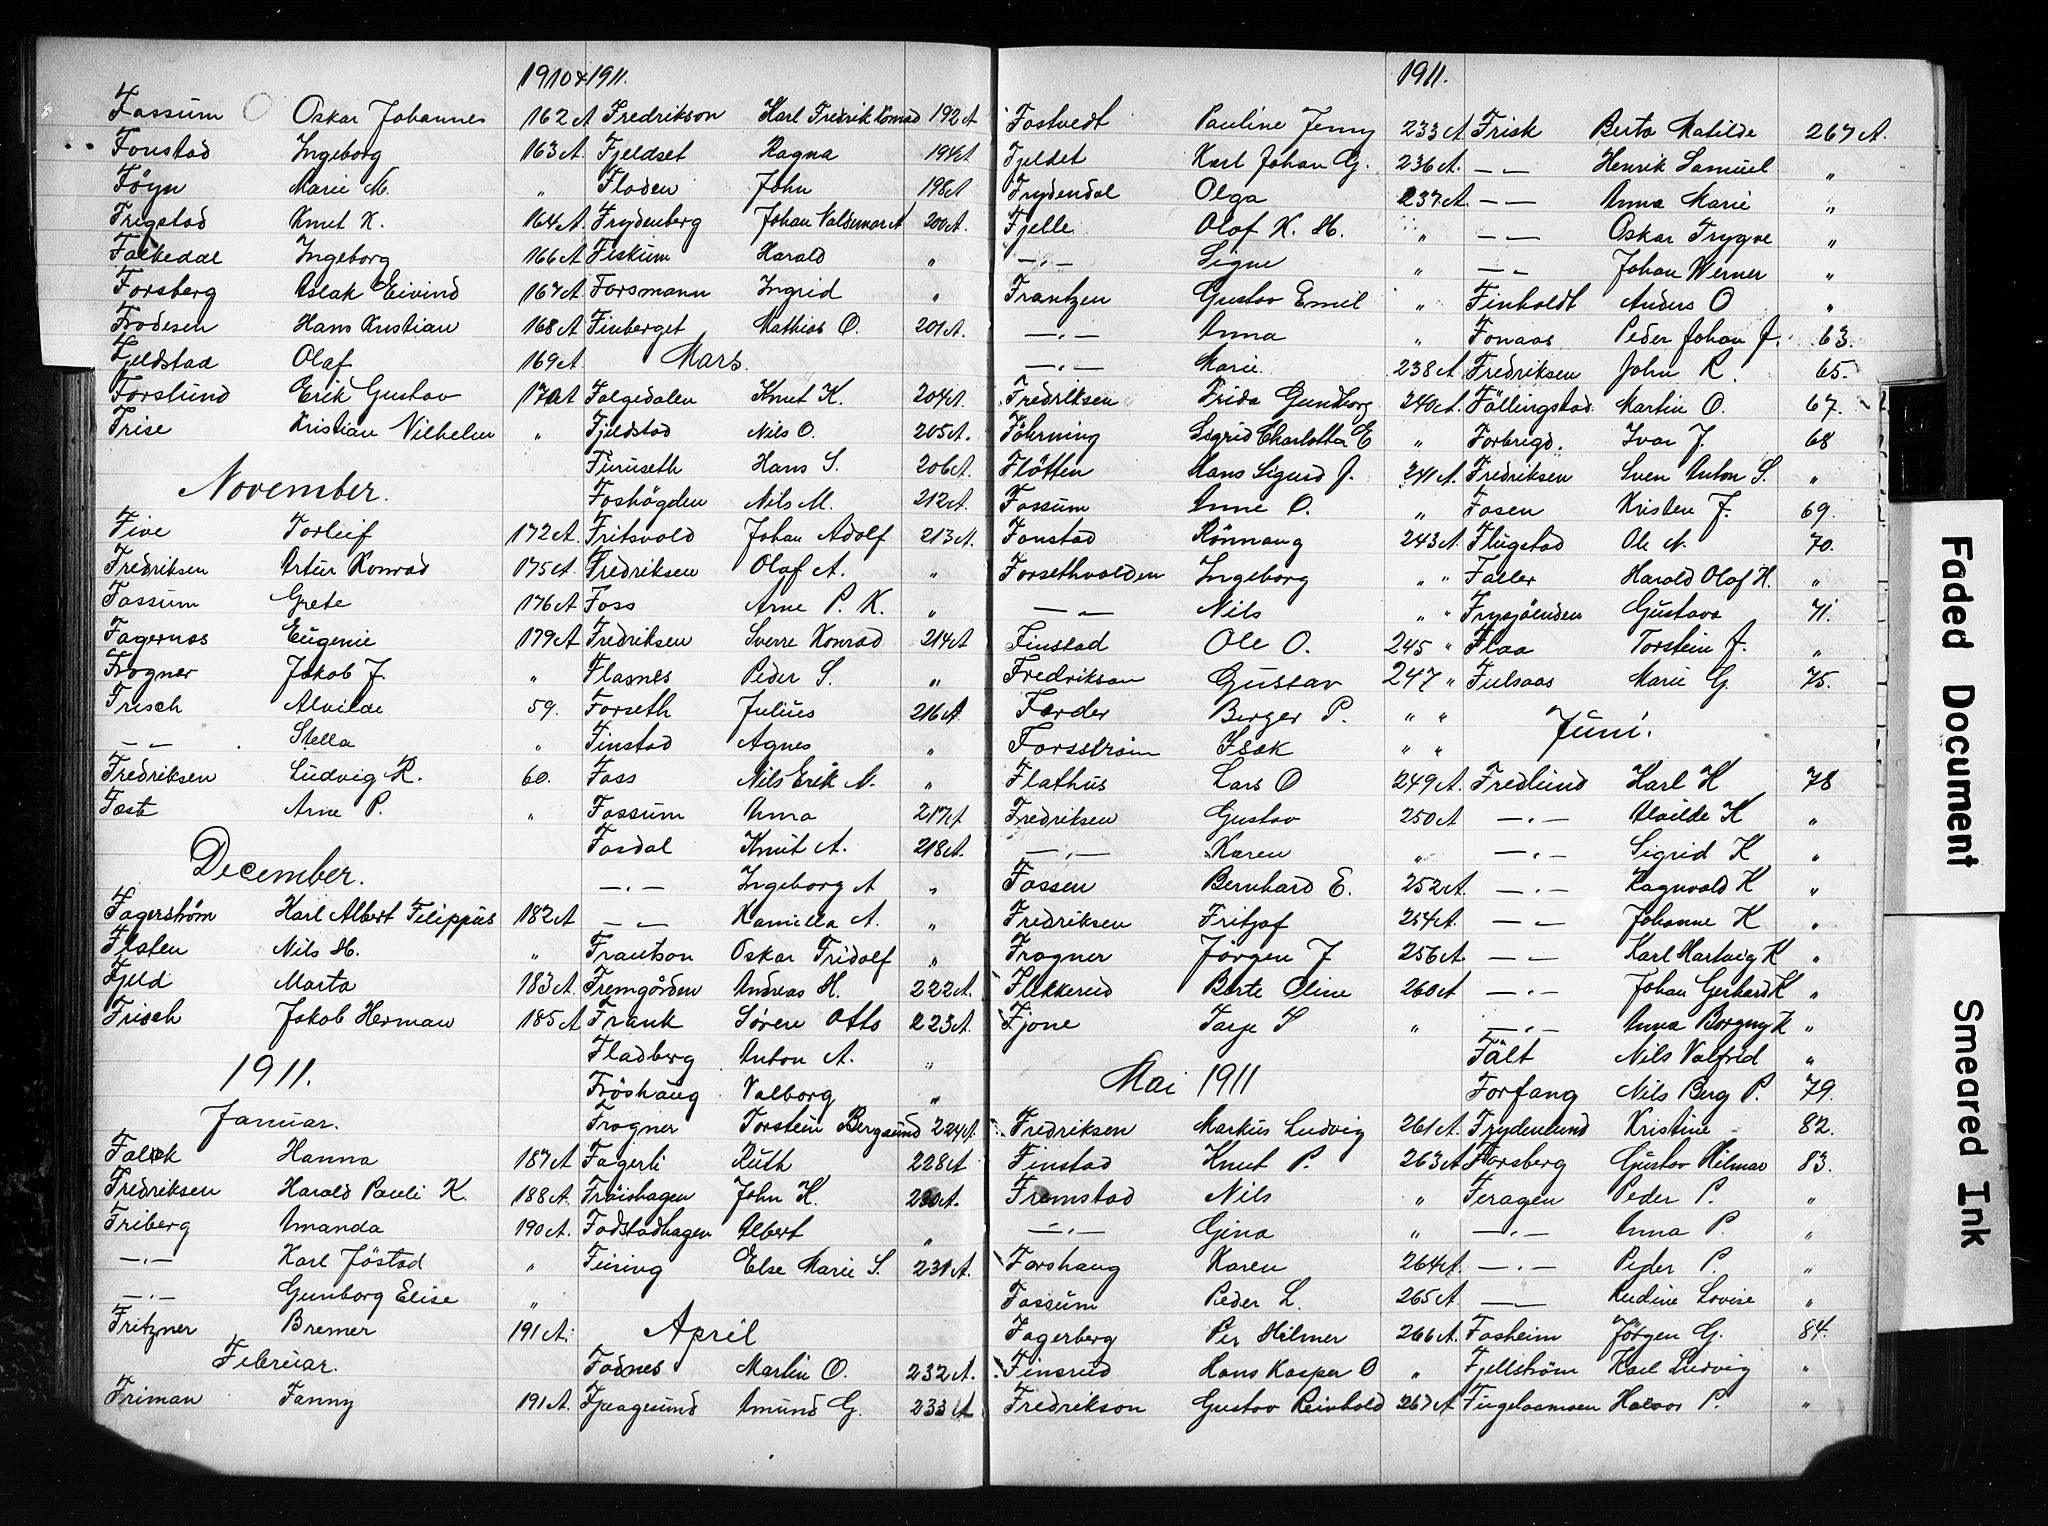 1910 & 1911.
Fossum Oskar Johannes 162 A
Fonstad Ingeborg 163 A
Föyn Marie M. „
Frigstad Knut K. 164 A
Falkedal Ingeborg 166 A
Forsberg Aslak Eivind 167 A
Frodesen Hans Kristian 168 A
Fjeldstad Olaf 169 A
Forslund Erik Gustav 170 A
Frise Kristian Vilhelm „
November.
Five Torleif 172 A
Fredriksen Artur Konrad 175 A
Fossum Grete 176 A
Fagernes Eugenie 179 A
Frogner Jakob J. „
Frisch Alvilde 59.
— „ — Stella „
Fredriksen Ludvig R. 60.
Arne P. „
December.
Fagerström Karl Albert Filippus 182 A
Flaten Nils H. „
Fjeld Marta 183 A
Frisch Jakob Herman 185 A
1911.
Januar.
Falck Hanna 187 A
Fredriksen Harald Pauli K. 188 A.
Friberg Amanda 190 A.
— „ — Karl Jöstad „
— „ — Gunborg Elise „
Fritzner Bremer 191 A.
Februar.
Friman Fanny 191 A.
Fredrikson Karl Fredrik Konrad 192 A
Fjeldset Ragna 194 A
Floden John 198 A
Frydenberg Johan Valdemar A 200 A.
Fiskum Harald „
Forsmann Ingrid „
Finberget Mathias O. 201 A.
Mars.
Falgedalen Knut K. 204 A.
Fjeldstad Nils O. 205 A.
Furuseth Hans S. 206 A.
Foshögden Nils M. 212 A.
Fritsvold Johan Adolf 213 A.
Fredriksen Olaf A. „
Foss Arne P. K. „
Fredriksen Sverre Konrad 214 A
Flasnes Peder S. „
Forseth Julius 216 A.
Finstad Agnes „
Foss Nils Erik N. „
Fossum Anna 217 A
Fosdal Knut A. 218 A.
— „ — Ingeborg A „
— „ — Kamilla A. „
Frantson Oskar Fridolf „
Fremgården Andreas H. 222 A.
Frank Sören Otto 223 A.
Fladberg Anton A. „
Fröshaug Valborg „
Frogner Torstein Bergsund 224 A.
Fagerli Ruth 228 A
Fraishagen John K. 230 A.
Fodstadhagen Albert „
Furing Else Marie S. 231 A.
April
Fodnes Martin O. 232 A.
Fjeagesund Amund G. 233 A
1911.
Fostvedt Pauline Jenny 233 A
Fjeldet Karl Johan G. 236 A.
Frydendal Olga 237 A.
Fjelle Olaf K. H. „
— „ — Signe „
Frantzen Gustav Emil „
— „ — Anna „
— „ — Marie 238 A
Fredriksen Frida Gundborg 240 A.
Föhrning Sigrid Charlotta E „
Flötten Hans Sigurd J. 241 A.
Fossum Anne O. „
Fonstad Rönnaug 243 A.
Forsethvolden Ingeborg „ „
— „ — Nils „ „
Finstad Ole O. 245 „
Fredrikson Gustav 247 „
Ferder Berger P. „ „
Forsström Isak „ „
Flathus Lars O 249 A.
Fredriksen Gustav 250 A
— „ — Karen „
Fossen Bernhard E. 252 A.
Fredriksen Fritjof 254 A.
Frogner Jörgen J 256 A.
Flekkerud Berte Oline 260 A
Fjone Tarje S „
Mai 1911
Fredriksen Markus Ludvig 261 A.
Finstad Knut P. 263 A
Fremstad Nils „
— „ — Gina „
Forshaug Karen 264 A.
Fossum Peder L. 265 A.
Fagerberg Per Hilmer 266 A.
Finsrud Hans Kasper O „
Fredrikson Gustav Reinhold 267 A
Frisk Berta Matilde 267 A.
— „ — Henrik Samuel „
— „ — Anna Marie „
— „ — Oskar Trygve „
— „ — Johan Werner „
Finholdt Anders O „
Fonaas Peder Johan J. 63.
Fredriksen John R. 65.
Föllingstad Martin O. 67.
Forbrigd. Ivar J. 68
Fredriksen Sven Anton S. „
Fosen Kristen J. 69.
Flugstad Ole N. 70.
Faller Harald Olaf H. „
Frysjöenden Gustava 71.
Flaa Torstein J. „
Fulsaas Marie G. 75.
Juni.
Fredlund Karl K 78
— „ — Alvilde K „
— „ — Sigrid K „
— „ — Ragnvald K „
— „ — Johanne K „
— „ — Karl Hartvig K „
— „ — Johan Gerhard K „
— „ — Anna Borgny K „
Fält Nils Valfrid „
Forfang Nils Berg P. 79.
Frydenlund Kristine 82.
Forsberg Gustav Hilmar 83.
Feragen Peder P. „
— „ — Anna P. „
— „ — Peder P. „
— „ — Rudine Lovise „
Fosheim Jörgen G. 84.
Fjellström Karl Ludvig „
Fingelaamoen Halvor P. „
Faded Document
Smeared Ink